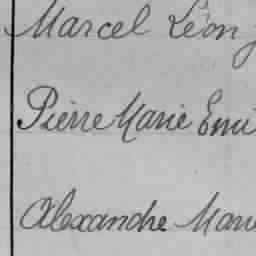 Marcel Léon
Pierre Marie Emi
Alexandre Marie